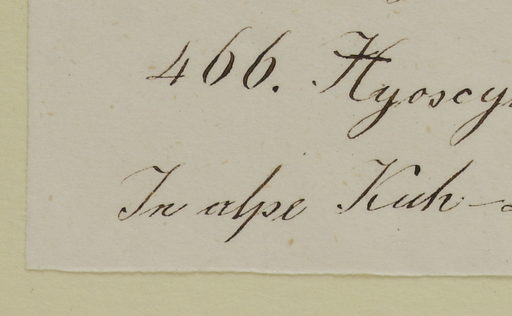 466. Hyoscy
In alpe Kuh-